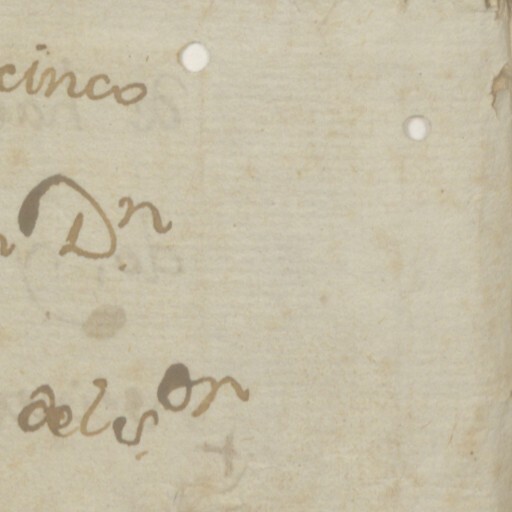 cinco
Dn
del sor